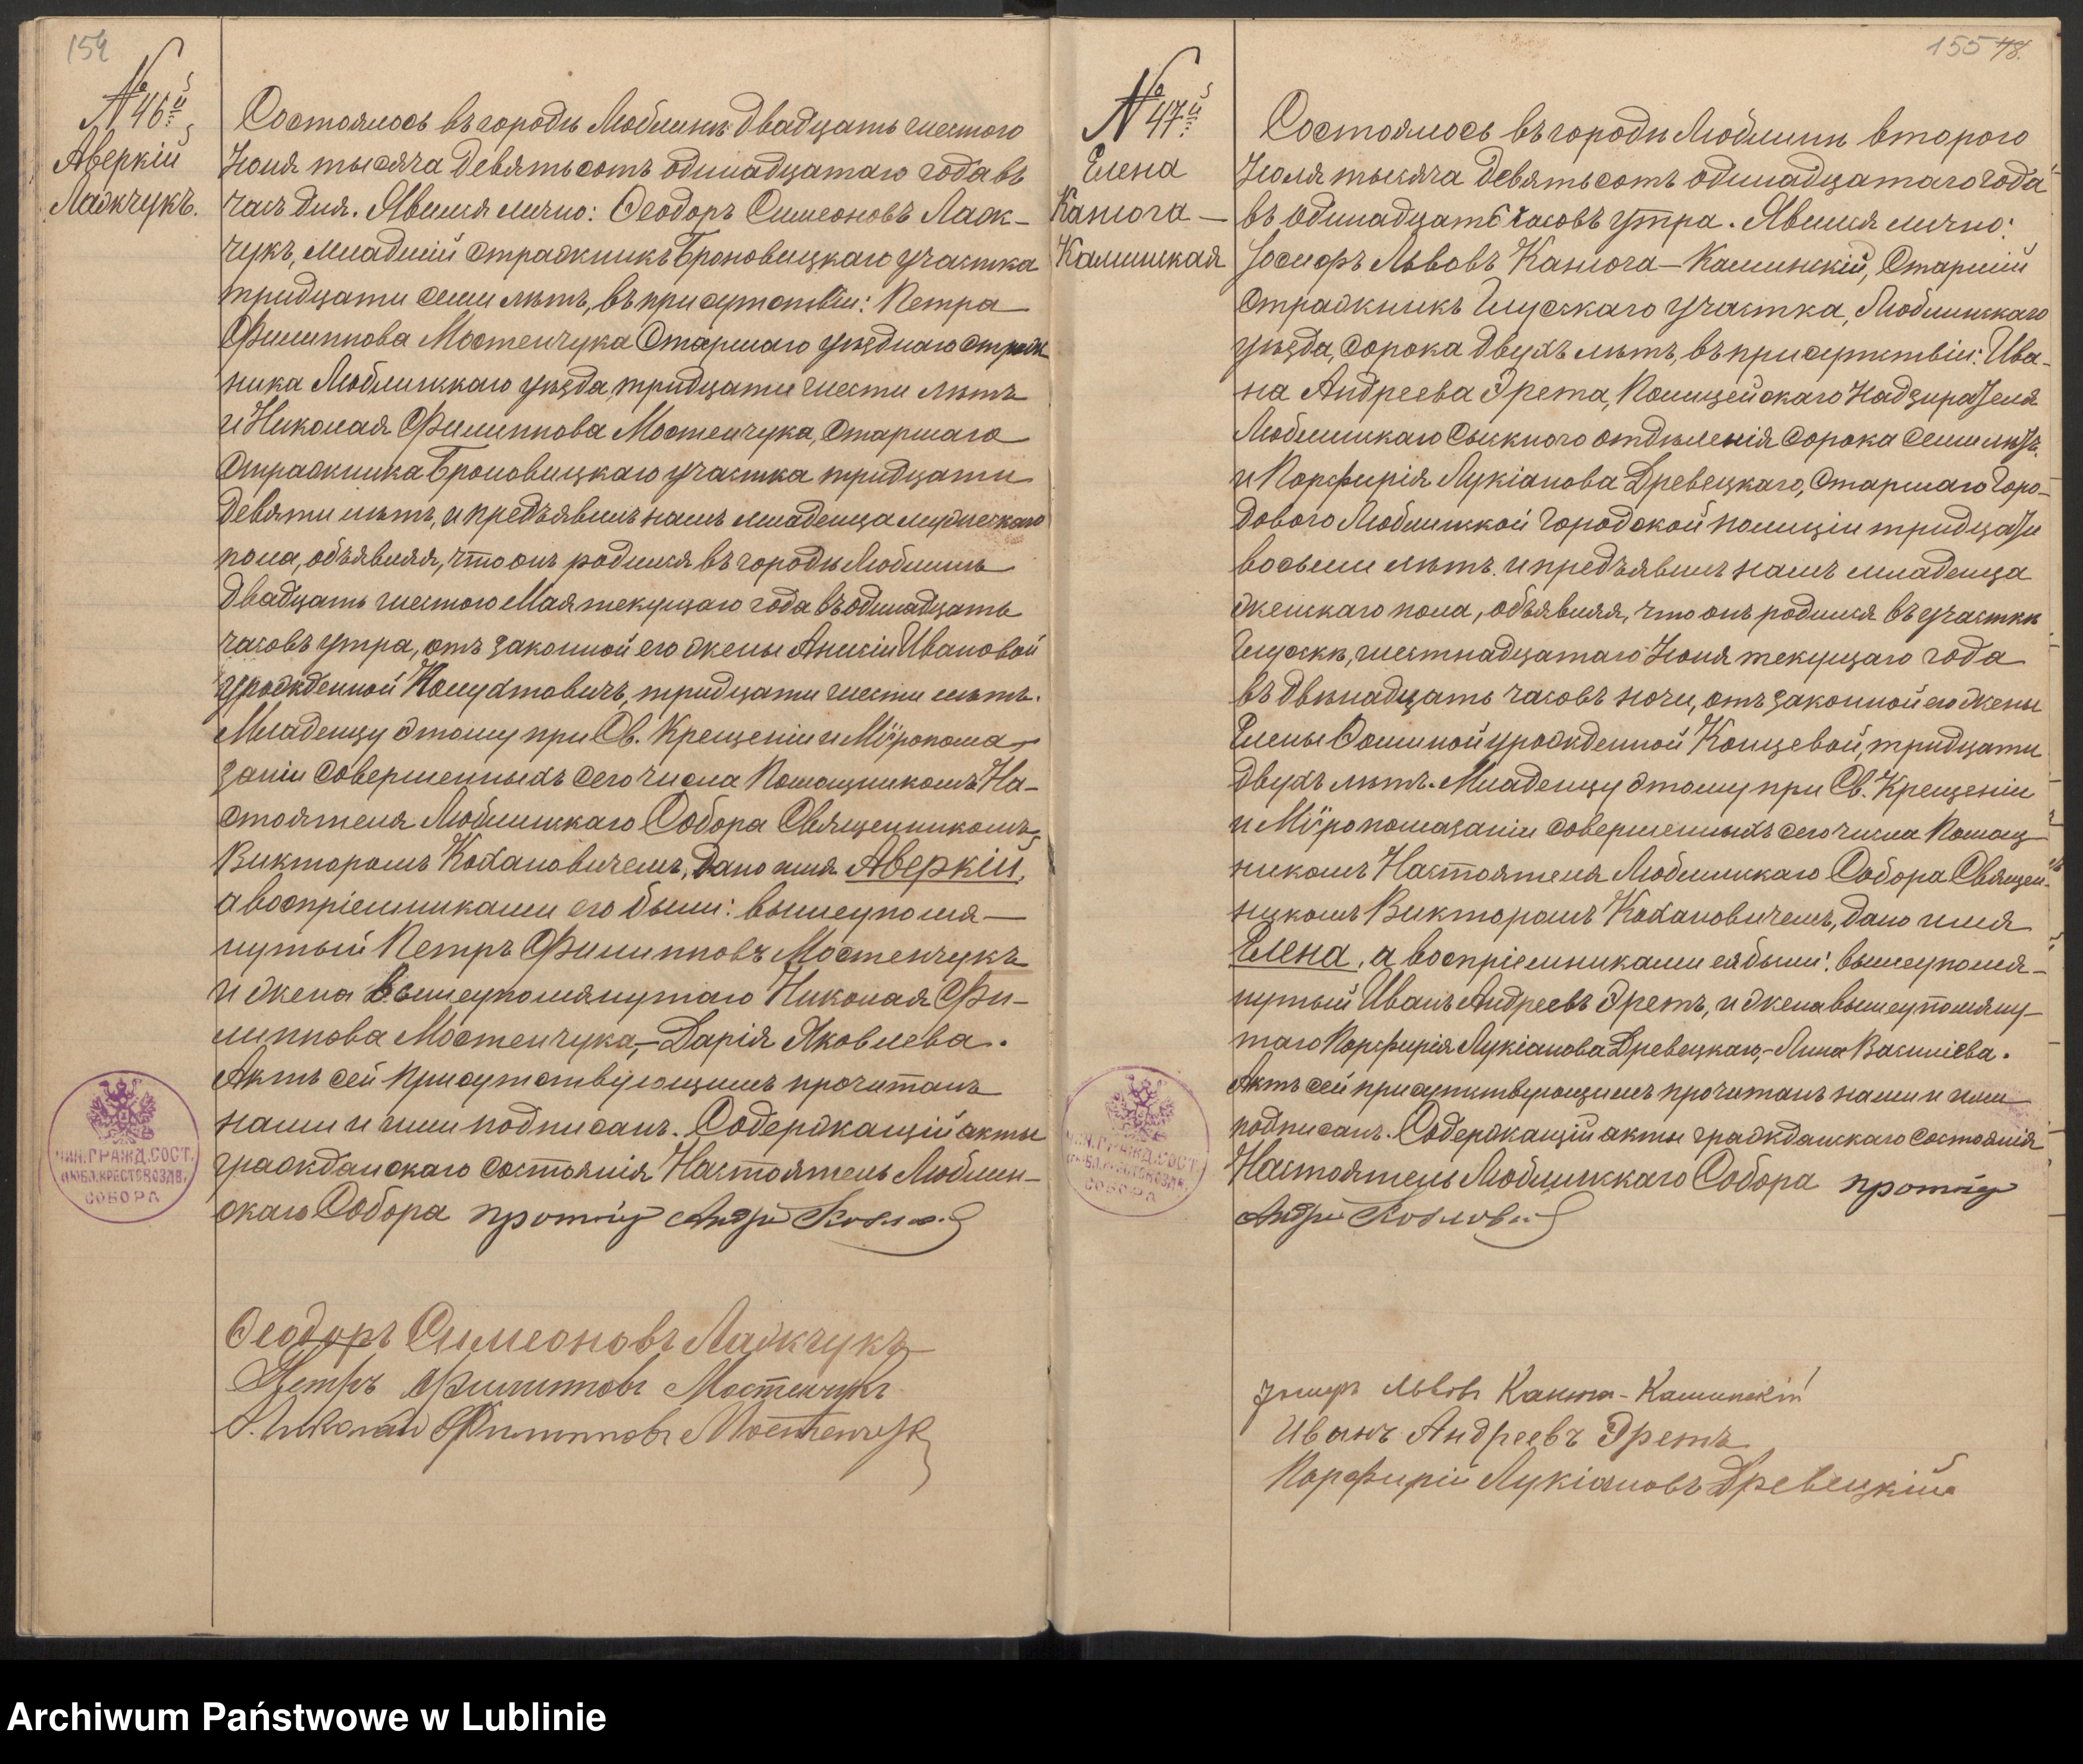 154
№ 46й
Аверкій
Лажчукъ.
Состоялось въ городѣ Люблинѣ двадцать шестого
Іюня тысяча девятьсотъ одинадцатаго года въ
часъ дня. Явился лично: Ѳеодоръ Симеоновъ Лаж-
чукъ, младшій стражникъ Броновицкаго участка
тридцати семи лѣтъ, въ присутствіи: Петра
Филиппова Мостенчука Старшаго уѣзднаго страж
ника Люблинскаго уѣзда, тридцати шести лѣтъ
и Николая Филиппова Мостенчука, Старшаго
Стражника Броновицкаго участка тридцати
девяти лѣтъ, и предъявилъ намъ младенца мужескаго
пола, объявляя, что онъ родился въ городѣ Люблинѣ
двадцать шестого Мая текущаго года въ одинадцать
часовъ утра, отъ законной его жены Анисіи Ивановой
урожденной Кошухтовичъ, тридцати шести лѣтъ.
Младенцу этому при Св. Крещеніи и Мѵропома
заніи совершенныхъ сего числа Помощникомъ На-
стоятеля Люблинскаго Собора Священникомъ
Викторомъ Кохановичемъ, дано имя Аверкій,
а воспріемниками его были: вышеупомя-
нутый Петръ Филипповъ Мостенчукъ
и жена вышеупомянутаго Николая Фи-
липпова Мостенчука,-Дарія Яковлева.
Актъ сей присутствующимъ прочитанъ
нами и ими подписанъ. Содержащій акты
гражданскаго состоянія Настоятель Люблин-
скаго Собора протоіер Андрей Ковлов
Ѳеодоръ Симеоновъ Лажчукъ
Петръ Филипповъ Мостенчукъ
Николай Филипповъ Мостенчук
ЧИН. ГРАЖД. СОСТ.
ЛЮБЛ. КРЕСТОВОЗДВ.
СОБОРА
155 78.
№ 47й
Елена
Канюга-
Калинская
Состоялось въ городѣ Люблинѣ второго
Іюля тысяча девятьсотъ одинадцатаго года
въ одинадцать часовъ утра. Явился лично:
Іосифъ Львовъ Канюга-Калинскій, Старшій
стражникъ Глусскаго участка, Люблинскаго
уѣзда, сорока двухъ лѣтъ, въ присутствіи: Ива-
на Андреева Эрета, Полицейскаго Надзирателя
Люблинскаго Сыскного отдѣленія сорока семи лѣтъ.
и Порфирія Лукіанова Древецкаго, Старшаго Горо-
дового Люблинской Городской полиціи тридцати
восьми лѣтъ. и предъявилъ намъ младенца
женскаго пола, объявляя, что онъ родился въ участкѣ
Глускѣ, шестнадцатаго Іюня текущаго года
въ двѣнадцать часовъ ночи, отъ законной его жены
Елены Фоминой урожденной Концевой, тридцати
двухъ лѣтъ. Младенцу этому при Св. Крещеніи
и Мѵропомазаніи совершенныхъ сего числа Помощ
никомъ Настоятеля Люблинскаго Собора Священ-
никомъ Викторомъ Кохановичемъ, дано имя
Елена, а воспріемниками ея были: вышеупомя-
нутый Иванъ Андреевъ Эретъ, и жена вышеупомяну-
таго Порфирія Лукіанова Древецкаго,-Анна Василіева.
Актъ сей присутствующимъ прочитанъ нами и ими
подписанъ. Содержащій акты гражданскаго состоянія
Настоятель Люблинскаго Собора протоіер
Андрей Ковлов
Іосифъ Львовъ Канюга-Калинскій
Иванъ Андреевъ Эретъ
Порфирій Лукіановъ Древецкій
ЧИН. ГРАЖД. СОСТ.
ЛЮБЛ. КРЕСТОВОЗДВ.
СОБОРА
Archiwum Państwowe w Lublinie